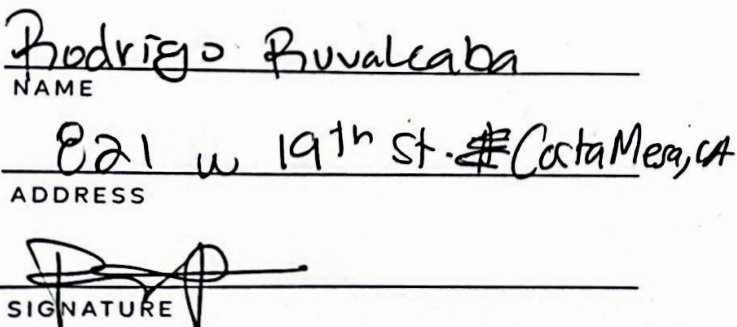 Rodrigo Ruvalcaba
NAME
821 w 19th St. Costa Mesa, CA
ADDRESS
SIGNATURE